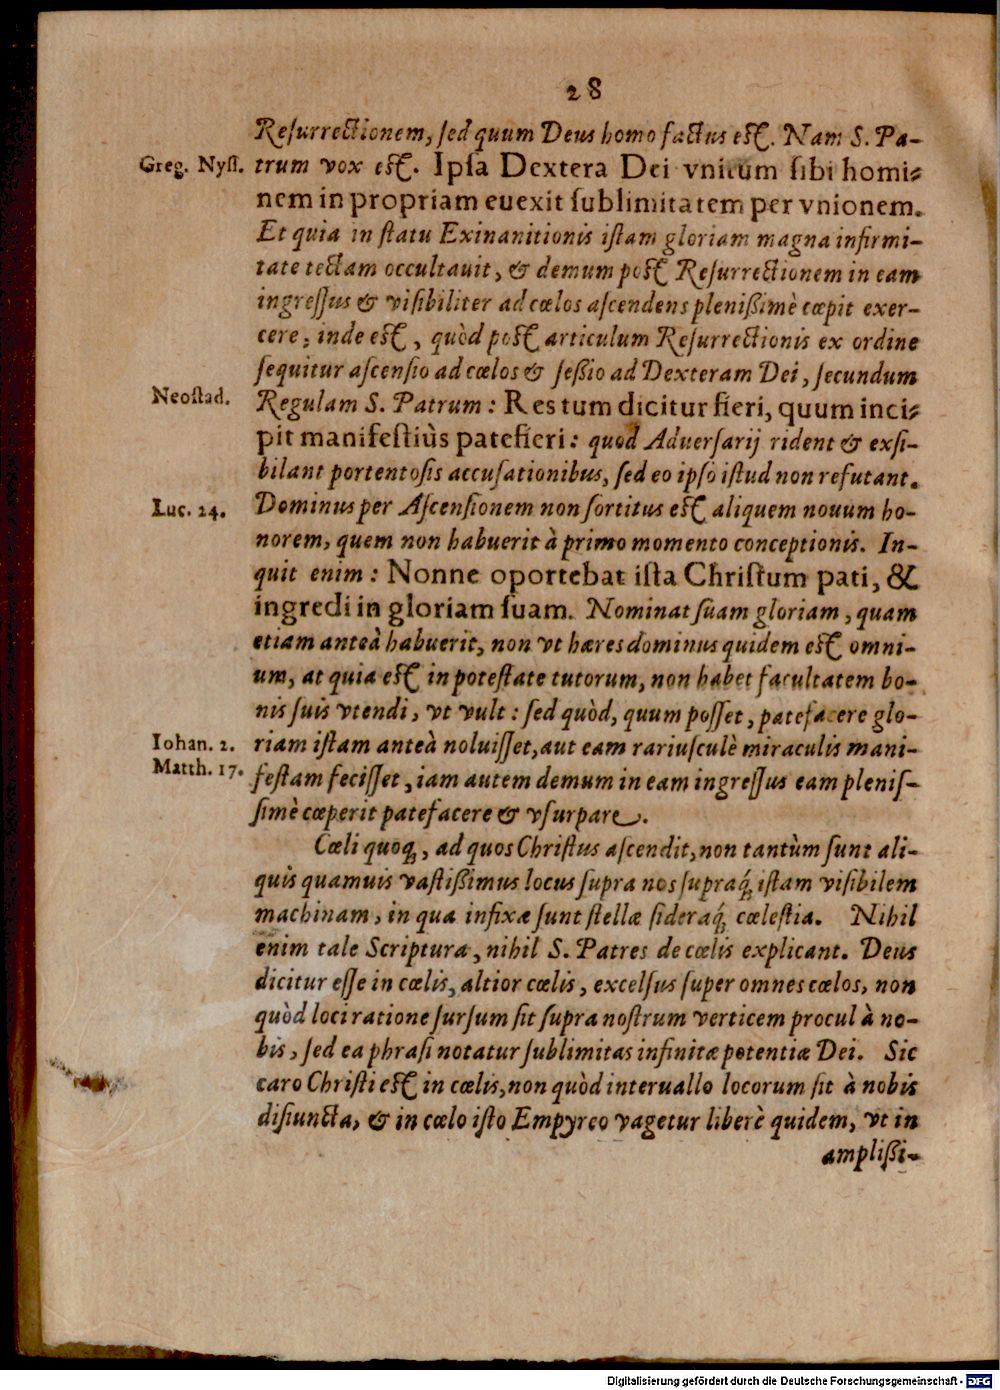 28
Reſurrectionem, ſed quum Deus homo factus eſt. Nam S. Pa-
Greg. Nyſſ. trum vox eſt. Ipſa Dextera Dei vnitum ſibi homi-
nem in propriam euexit ſublimitatem per vnionem.
Et quia in ſtatu Exinanitionis iſtam gloriam magna infirmi-
tate tectam occultauit, & demum poſt Reſurrectionem in eam
ingreſſus & viſibiliter ad cœlos aſcendens pleniſsimè cœpit exer-
cere, inde eſt, quòd poſt articulum Reſurrectionis ex ordine
ſequitur aſcenſio ad cœlos & ſeſsio ad Dexteram Dei, ſecundum
Neoſtad. Regulam S. Patrum: Res tum dicitur fieri, quum inci-
pit manifeſtiùs patefieri: quod Aduerſarij rident & exſi-
bilant portentoſis accuſationibus, ſed eo ipſo iſtud non refutant.
Luc. 24. Dominus per Aſcenſionem non ſortitus eſt aliquem nouum ho-
norem, quem non habuerit à primo momento conceptionis. In-
quit enim: Nonne oportebat iſta Chriſtum pati, &
ingredi in gloriam ſuam. Nominat ſuam gloriam, quam
etiam anteà habuerit, non vt hæres dominus quidem eſt omni-
um, at quia eſt in poteſtate tutorum, non habet facultatem bo-
nis ſuis vtendi, vt vult: ſed quòd, quum poſſet, patefacere glo-
Iohan. 2. riam iſtam anteà noluiſſet, aut eam rariuſculè miraculis mani-
Matth. 17. feſtam feciſſet, iam autem demum in eam ingreſſus eam pleniſ-
ſimè cœperit patefacere & vſurpare.
Cœli quoq́;, ad quos Chriſtus aſcendit, non tantùm ſunt ali-
quis quamuis vaſtiſsimus locus ſupra nos ſupraq́; iſtam viſibilem
machinam, in qua infixæ ſunt ſtellæ ſideraq́; cœleſtia. Nihil
enim tale Scriptura, nihil S. Patres de cœlis explicant. Deus
dicitur eſſe in cœlis, altior cœlis, excelſus ſuper omnes cœlos, non
quòd loci ratione ſurſum ſit ſupra noſtrum verticem procul à no-
bis, ſed ea phraſi notatur ſublimitas infinitæ potentiæ Dei. Sic
caro Chriſti eſt in cœlis, non quòd interuallo locorum ſit à nobis
diſiuncta, & in cœlo iſto Empyreo vagetur liberè quidem, vt in
ampliſsi-
Digitalisierung gefördert durch die Deutsche Forschungsgemeinschaft - DFG